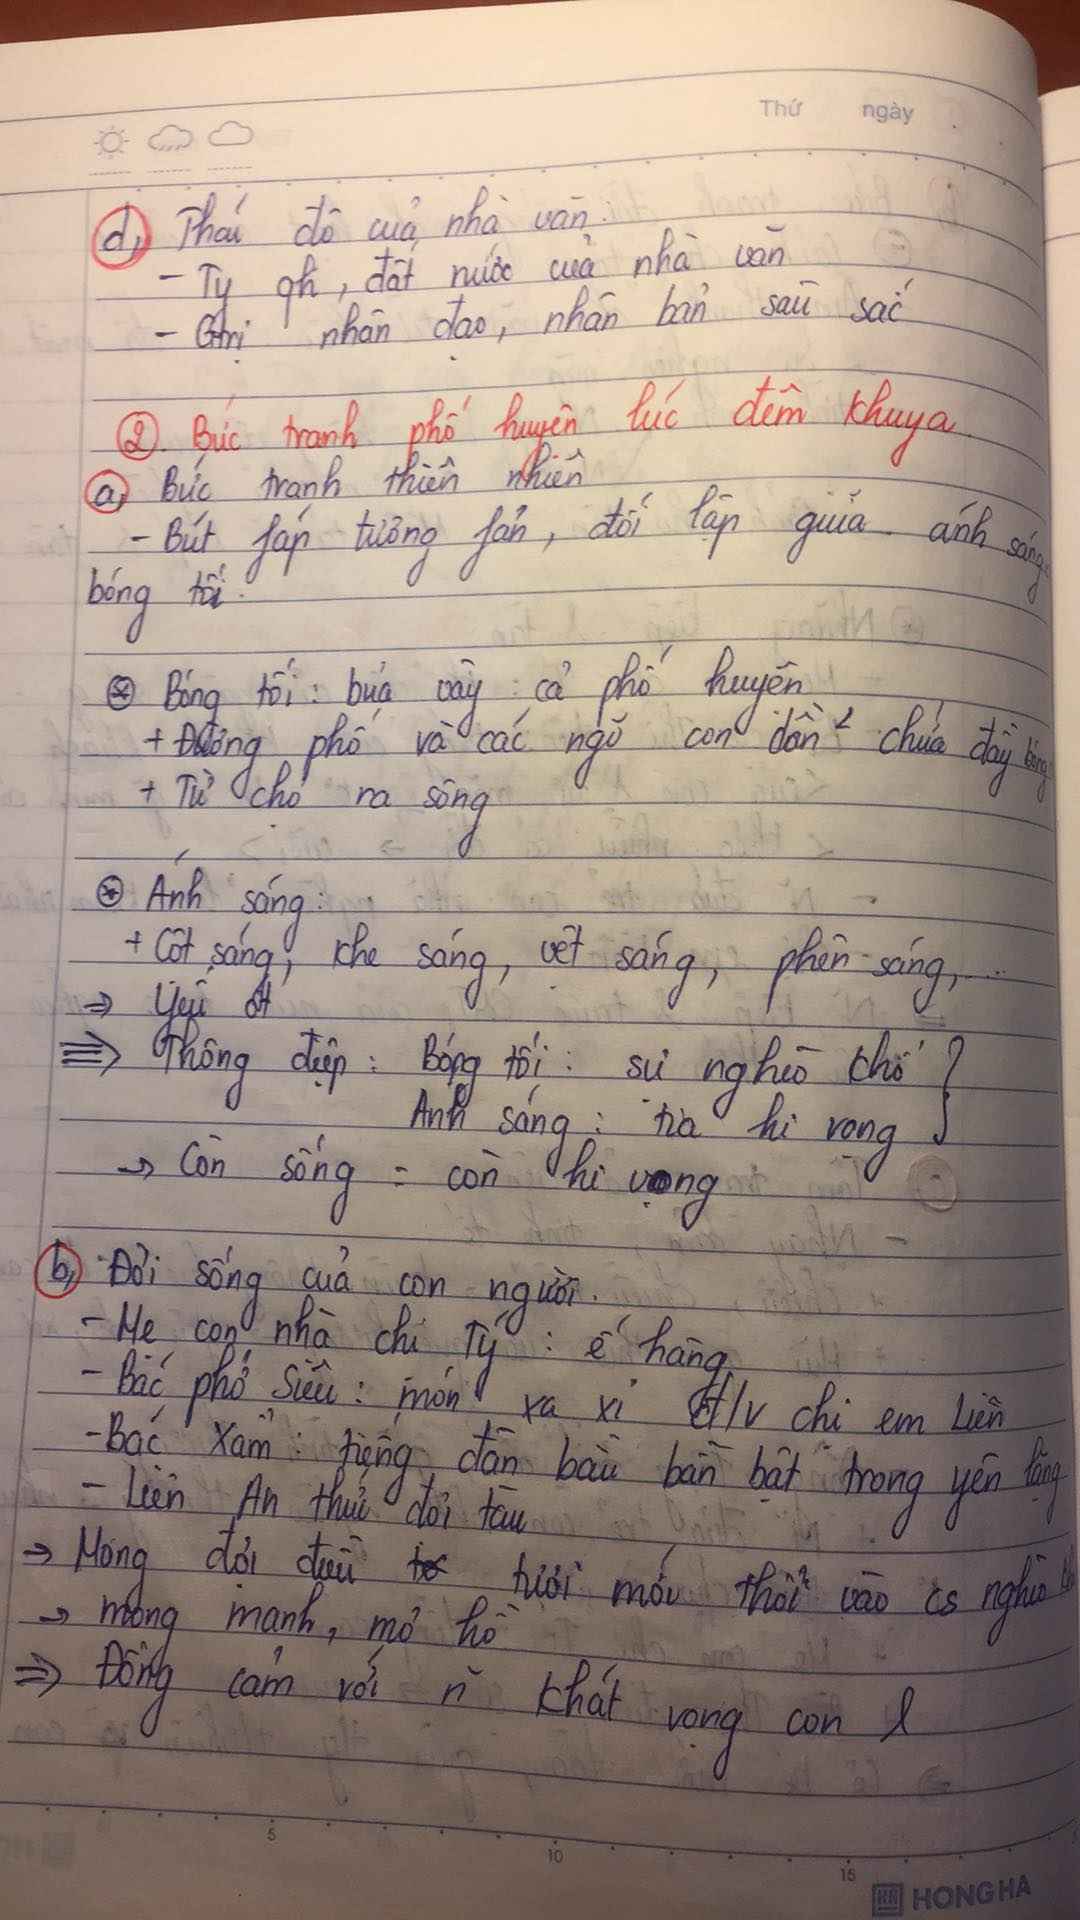 Thứ ngày
d, Thái độ của nhà văn.
- Ty qh, đất nước của nhà văn
- Gtrị nhân đạo, nhân bản sâu sắc
②. Bức tranh phố huyện lúc đêm khuya.
a, Bức tranh thiên nhiên
- Bút fáp tương fản, đối lập giữa ánh sáng
bóng tối.
⊛ Bóng tối: bủa vây: cả phố huyện
+ Đường phố và các ngõ con dần² chứa đầy bóng
+ Từ chợ ra sông
⊛ Ánh sáng:
+ Cột sáng, khe sáng, vệt sáng, phên sáng,...
⇒ Yếu ớt
⇒ Thông điệp: Bóng tối: sự nghèo khổ }
Ánh sáng: tia hi vọng
→ Còn sống = còn hi vọng
b, Đời sống của con người.
- Mẹ con nhà chị Tý: ế hàng
- Bác phở Siêu: món xa xỉ đ/v chị em Liên
- Bác Xẩm: tiếng đàn bầu bần bật trong yên lặng
- Liên An thức đợi tàu
→ Mong đợi điều tươi mới thổi vào cs nghèo
→ mong manh, mơ hồ
⇒ Đồng cảm với n~ khát vọng con
5 10 15
HONG HA